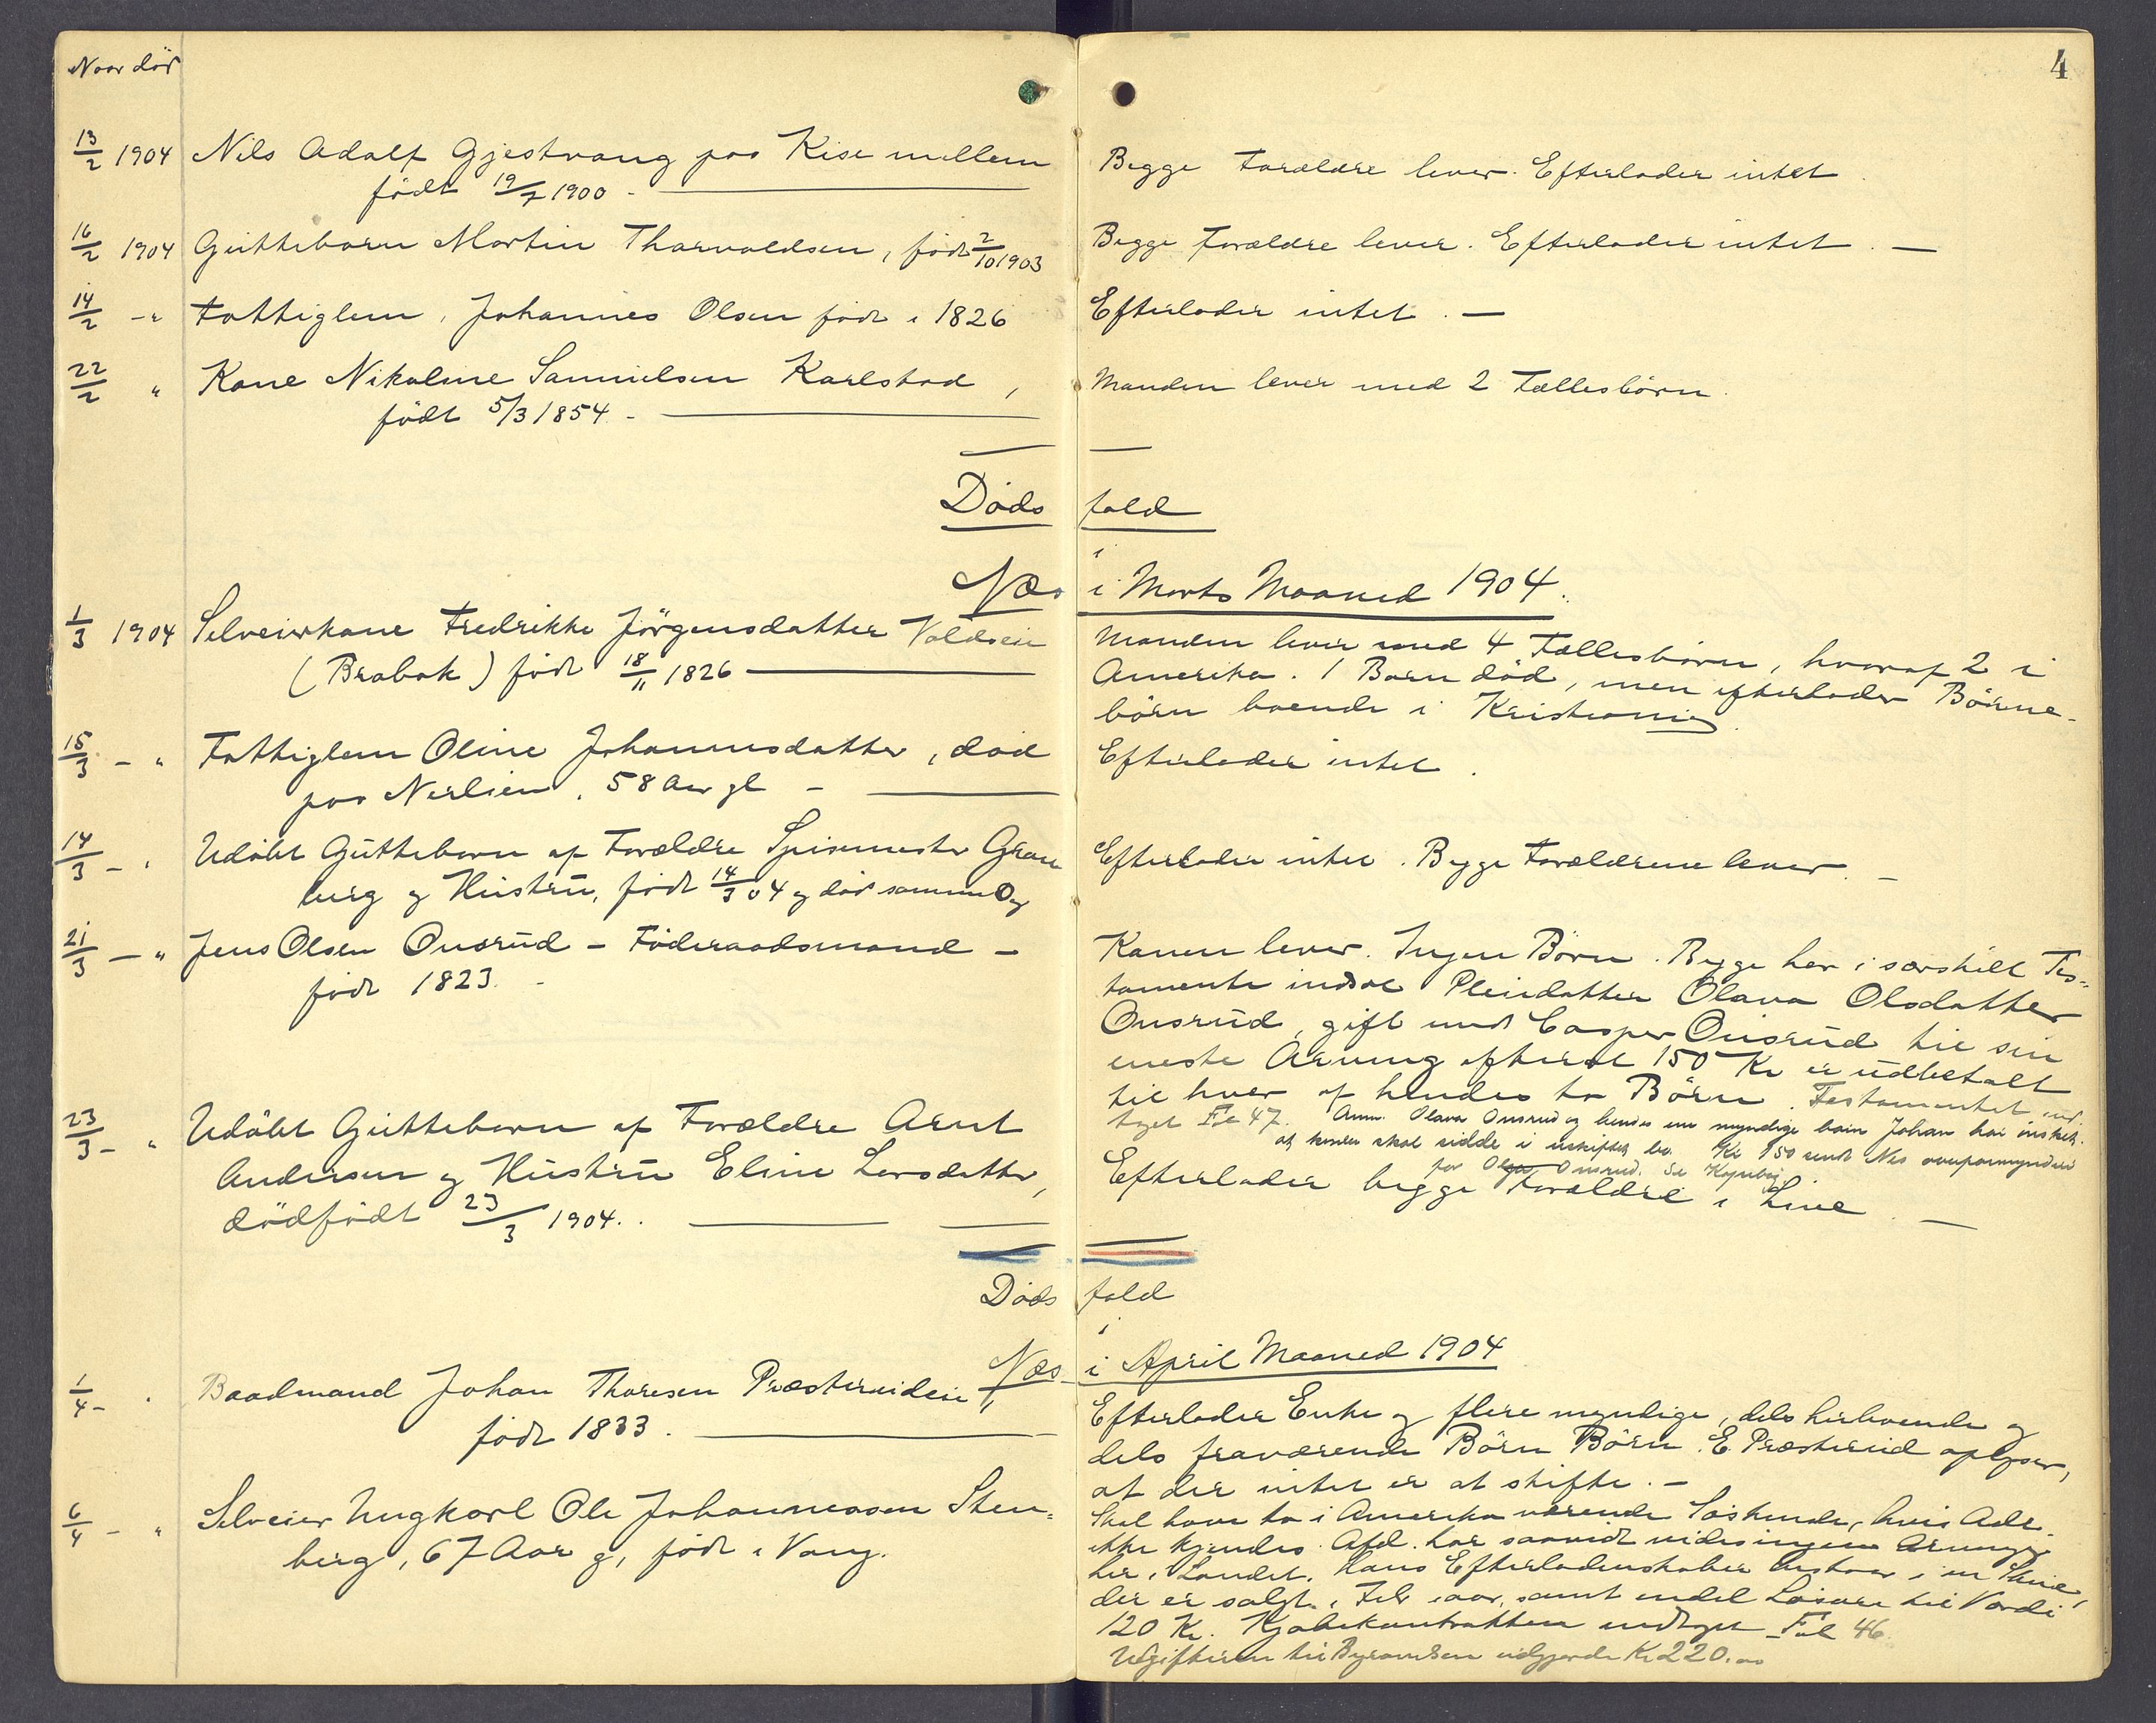 Naar död
4
13/2 1904 Nils Adolf Gjestvang paa Kise mellem
födt 19/7 1900 -
Begge Forældre lever. Efterlader intet.
16/2 1904 Guttebarn Martin Thorvaldsen, född 2/10 1903
Begge Forældre lever. Efterlader intet. —
14/2 - " Fattiglem, Johannes Olsen född i 1826
Efterlader intet. —
22/2 " Kone Nikoline Samuelsen Karlstad,
födt 5/3 1854 -
Manden lever med 2 Fællesbörn.
Döds fald
i
Næs i Marts Maaned 1904.
1/3 1904 Selveierkone Fredrikke Jörgensdatter Voldseie
(Brabak) född 18/11 1826
Manden lever med 4 Fællesbörn, hvoraf 2 i
Amerika. 1 Barn död, men efterlader Börne-
börn boende i Kristiania.
15/3 - " Fattiglem Oline Johannesdatter, död
paa Nerlien, 58 Aar gl -
Efterlader intet.
14/3 - " Udöbt Guttebarn af Forældre Spisemester Gran
berg og Hustru, född 14/3 04 og död samme Dag
Efterlader intet. Begge Forældrene lever. -
21/3 - " Jens Olsen Onsrud - Föderaadsmand -
född 1823. -
Kanen lever. Ingen Börn. Begge har i særskilt Tes-
tamente indsat Pleiedatter Olava Olsdatter
Onsrud, gift med Casper Onsrud til sin
eneste Arving efterat 150 Kr er udbetalt
til hver af hendes to Börn. Testamentet ind
taget Fol 47. Anm. Olava Onsrud og hendes ene myndige barn Johan har önsket
at konen skal sidde i uskiftet bo. Kr 150 sendt Nes overformynderi
for Onsrud. Se Kopibog
23/3 - " Udöbt Guttebarn af Forældre Arnt
Andersen og Hustru Eline Larsdatter,
dödfödt 23/3 1904..
Efterlader begge Forældre i Live. —
Döds fald
i
Næs i April Maaned 1904
1/4 - " Baadmand Johan Thoresen Præsterudeie,
född 1833.
Efterlader Enke og flere myndige, dels herboende og
dels fraværende Börn Börn. E. Præsterud oplyser,
at der intet er at skifte. -
6/4 - " Selveier Ungkarl Ole Johannessen Sten-
berg, 67 Aar g, född i Vang.
Skal have to i Amerika værende Söskende, hvis Adr.
ikke kjendes. Afd. har saavidt vides ingen Arvinger
her i Landet. Hans Efterladenskaber bestaar i en
der er solgt i Feb iaar, samt endel Lösöre til Værdi
120 Kr. Kjöbekontrakten indtaget Fol 46.
Udgifterne til Begravelsen udgjorde Kr 220.00